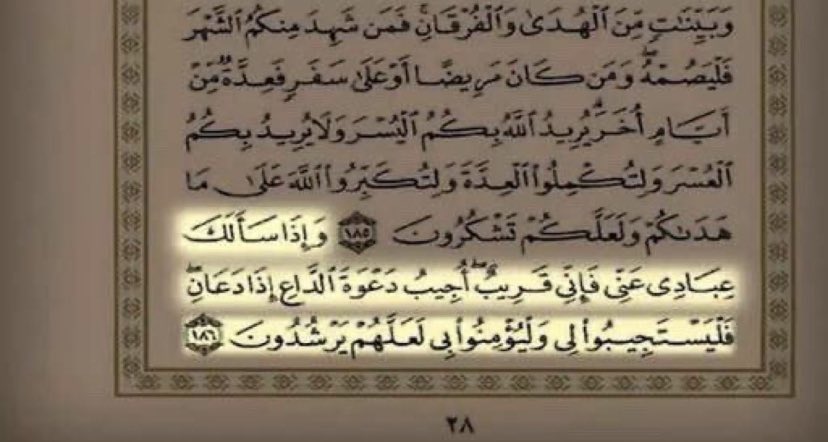 وَبَيِّنَٰتٍ مِّنَ ٱلْهُدَىٰ وَٱلْفُرْقَانِۚ فَمَن شَهِدَ مِنكُمُ ٱلشَّهْرَ
فَلْيَصُمْهُۖ وَمَن كَانَ مَرِيضًا أَوْ عَلَىٰ سَفَرٍ فَعِدَّةٌ مِّنْ
أَيَّامٍ أُخَرَۗ يُرِيدُ ٱللَّهُ بِكُمُ ٱلْيُسْرَ وَلَا يُرِيدُ بِكُمُ
ٱلْعُسْرَ وَلِتُكْمِلُوا۟ ٱلْعِدَّةَ وَلِتُكَبِّرُوا۟ ٱللَّهَ عَلَىٰ مَا
هَدَىٰكُمْ وَلَعَلَّكُمْ تَشْكُرُونَ ١٨٥ وَإِذَا سَأَلَكَ
عِبَادِى عَنِّى فَإِنِّى قَرِيبٌۖ أُجِيبُ دَعْوَةَ ٱلدَّاعِ إِذَا دَعَانِۖ
فَلْيَسْتَجِيبُوا۟ لِى وَلْيُؤْمِنُوا۟ بِى لَعَلَّهُمْ يَرْشُدُونَ ١٨٦
٢٨